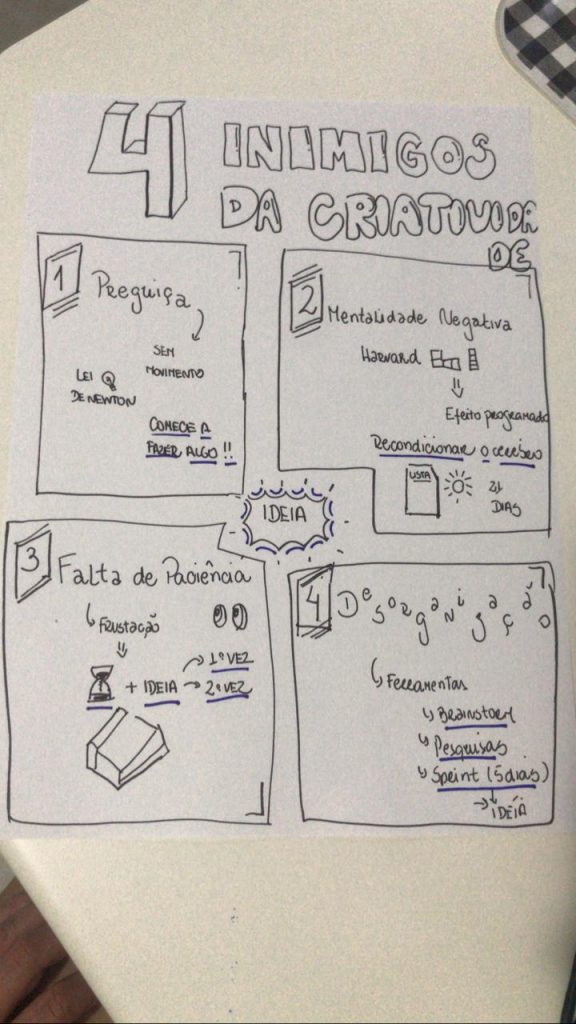 4 INIMIGOS
DA CRIATIVIDA
DE
1 Preguiça
SEM
MOVIMENTO
LEI
DE NEWTON
COMECE A
FAZER ALGO !!
2 Mentalidade Negativa
Harvard
Efeito programado
Recondicionar o cerébro
LISTA
21
DIAS
IDEIA
3 Falta de Paciência
FRUSTAÇÃO
+ IDEIA
1ª VEZ
2ª VEZ
4 Desorganização
Ferramentas
Brainstorm
Pesquisas
Sprint (5 dias)
IDÉIA